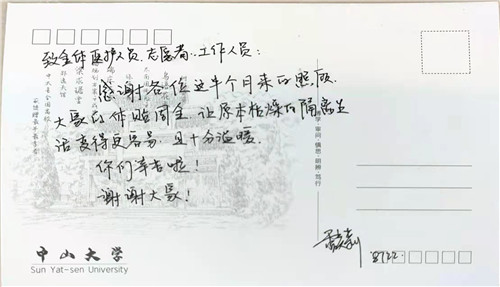 致全体医护人员、志愿者、工作人员：
感谢各位这半个月来的照顾
大家的体贴周全，让原本枯燥的隔离生
活变得更容易，且十分温暖。
你们辛苦啦！
谢谢大家！
8722.
博学 审问 慎思 明辨 笃行
中山大学
Sun Yat-sen University